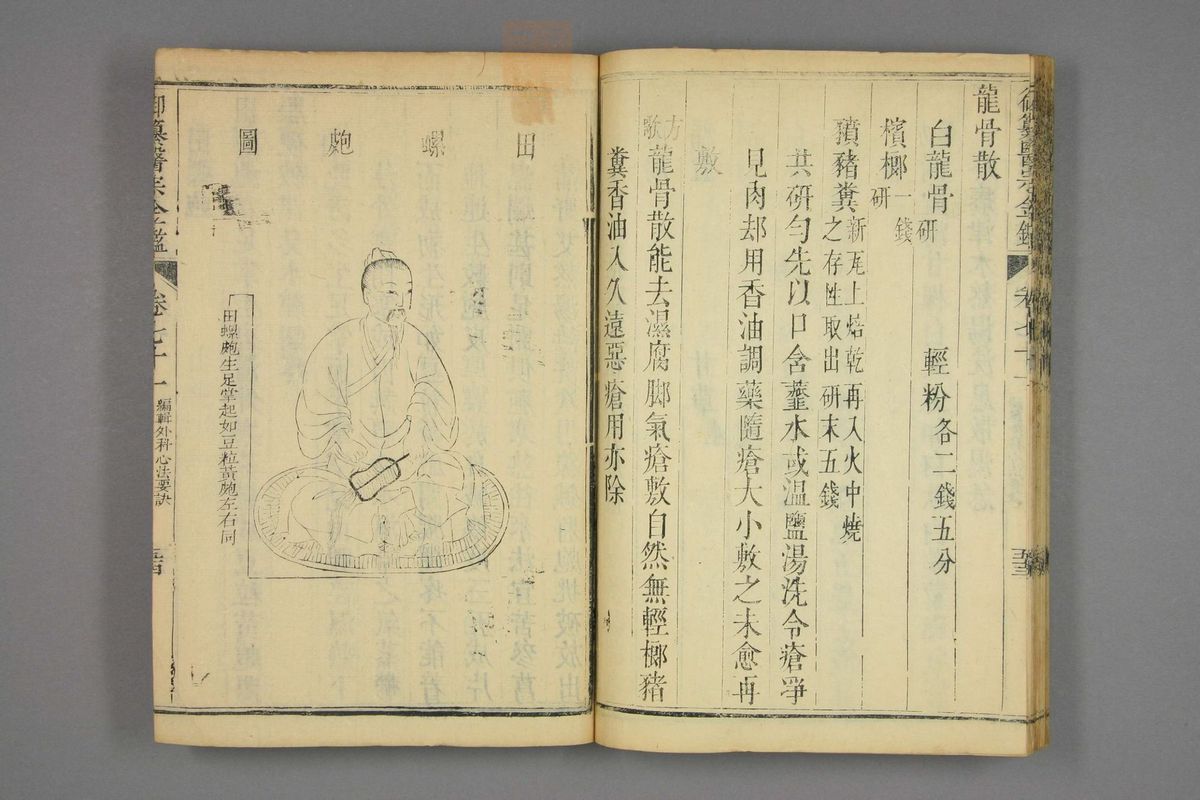 龍骨散
白龍骨研 輕粉各二錢五分
檳榔一錢研
豶豬糞新瓦上焙乾再入火中燒之存性取出研末五錢
共研勻先以口含虀水或溫鹽湯洗令瘡淨
見肉却用香油調藥隨瘡大小敷之未愈再
敷
方歌 龍骨散能去濕腐脚氣瘡敷自然無輕榔豬
糞香油入久遠惡瘡用亦除
御纂醫宗金鑑 卷七十一
五三
田螺皰圖
田螺皰生足掌起如豆粒黃皰左右同
御纂醫宗金鑑 卷七十一 編輯外科心法要訣
五四